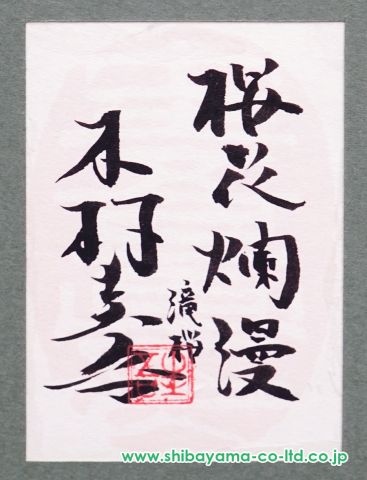 桜花爛漫
滝桜
木村圭吾
www.shibayama-co-ltd.co.jp